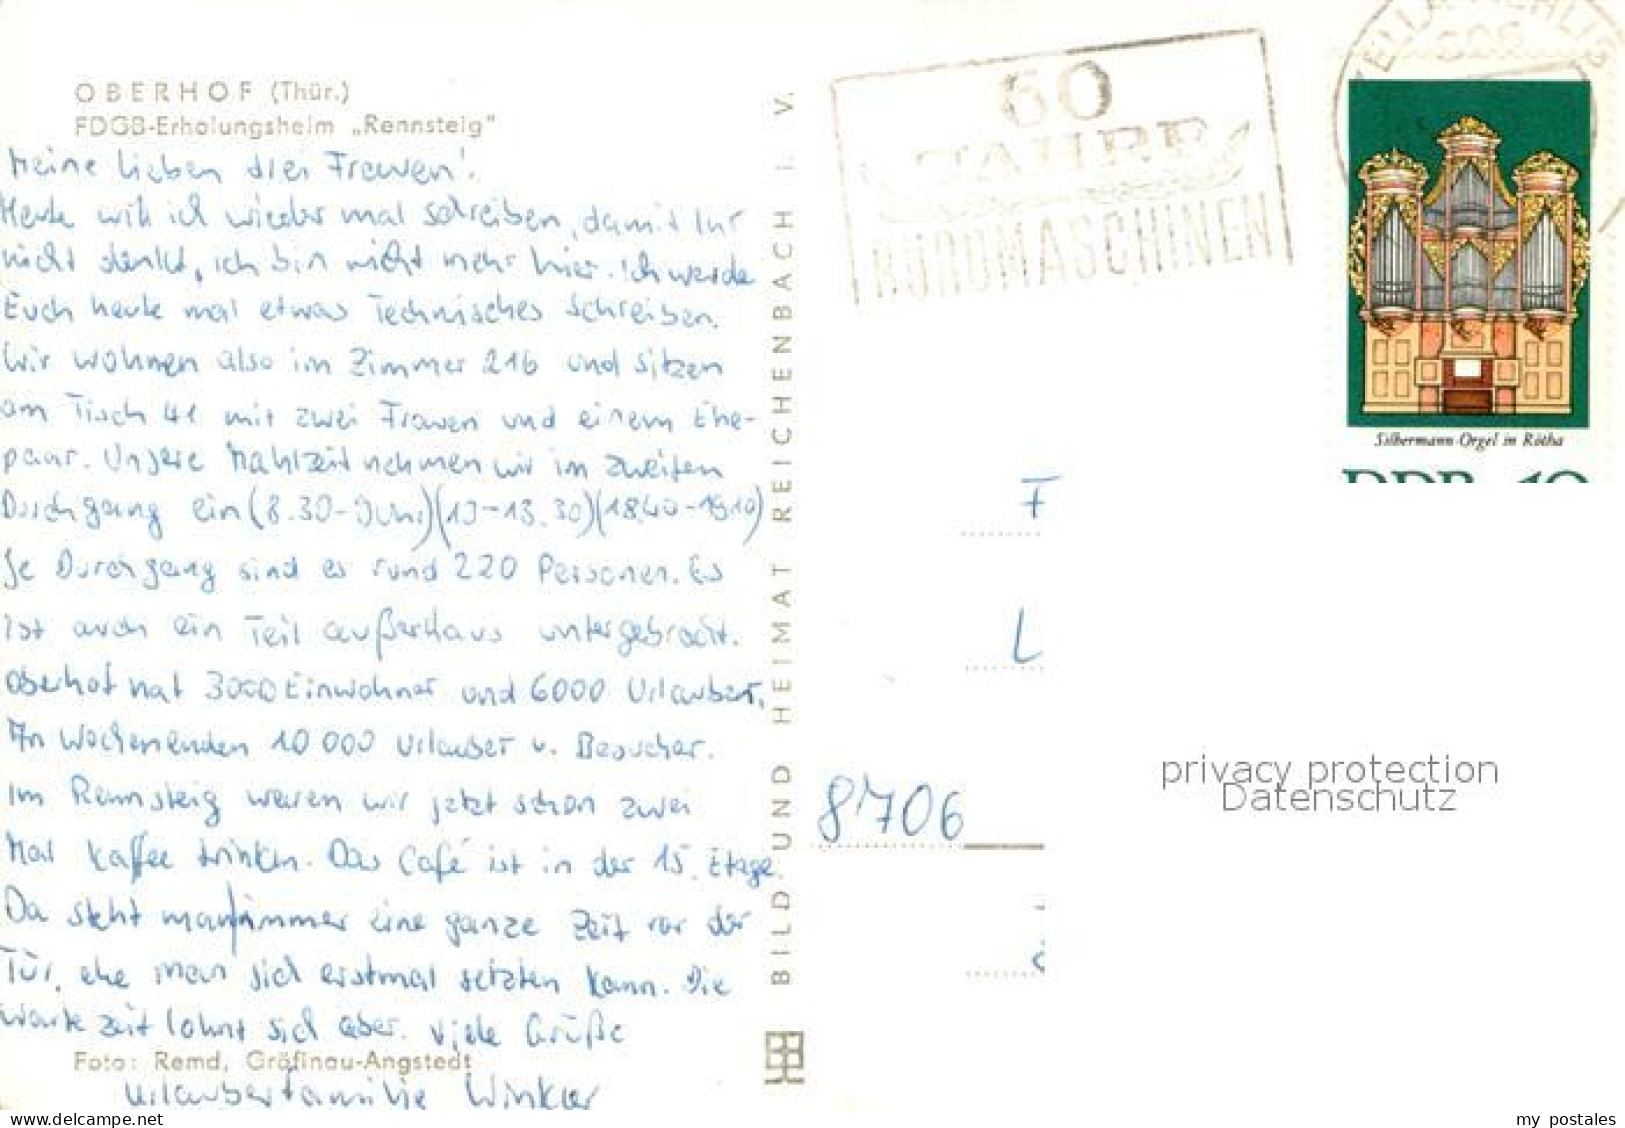 OBERHOF (Thür.)
FDGB-Erholungsheim „Rennsteig"
Meine lieben drei Frauen!
Heute will ich wieder mal schreiben, damit Ihr
nicht denkt, ich bin nicht mehr hier. Ich werde
Euch heute mal etwas Technisches schreiben.
Wir wohnen also im Zimmer 216 und sitzen
am Tisch 41 mit zwei Frauen und einem Ehe-
paar. Unsere Mahlzeit nehmen wir im zweiten
Durchgang ein (8.30-9Uhr) (13-13.30) (18.40-19.10)
Je Durchgang sind es rund 220 Personen. Es
ist auch ein Teil außerhaus untergebracht.
Oberhof hat 3000 Einwohner und 6000 Urlauber.
An Wochenenden 10 000 Urlauber u. Besucher.
Im Rennsteig waren wir jetzt schon zwei
Mal Kaffee trinken. Das Café ist in der 15. Etage.
Da steht man immer eine ganze Zeit vor der
Tür, ehe man sich erstmal setzten kann. Die
Wartezeit lohnt sich aber. Viele Grüße
Foto: Remd, Gräfinau-Angstedt
Urlauberfamilie Winkler
BILD UND HEIMAT REICHENBACH I. V.
60
JAHRE
BÜROMASCHINEN
ZELLA-MEHLIS
Silbermann-Orgel in Rötha
DDR 10
F
L
8706
privacy protection
Datenschutz
delcampe.net
my_postales